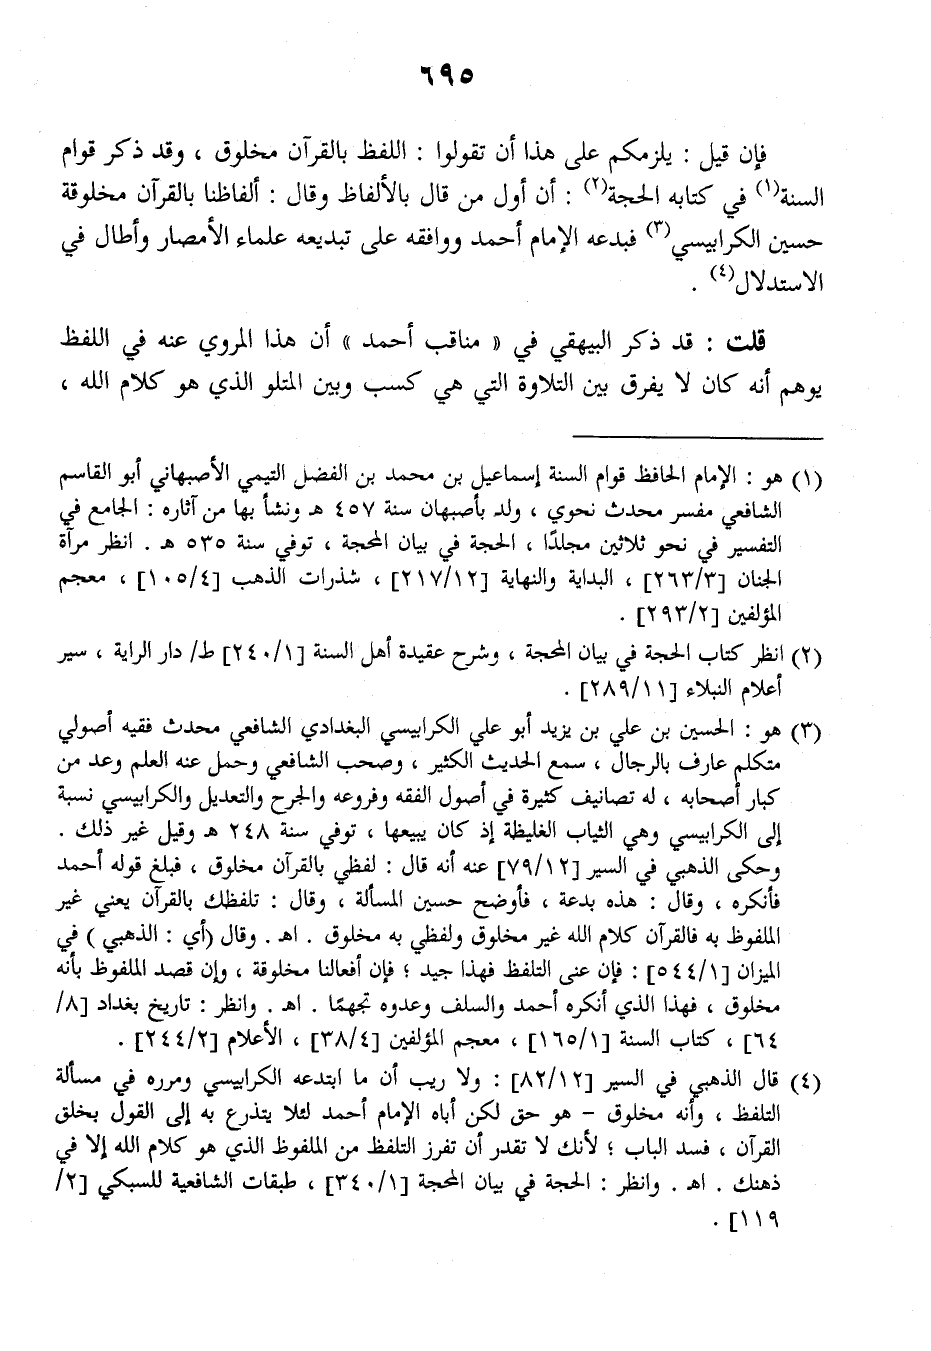 ٦٩٥
فإن قيل : يلزمكم على هذا أن تقولوا : اللفظ بالقرآن مخلوق ، وقد ذكر قوام
السنة(١) في كتابه الحجة(٢) : أن أول من قال بالألفاظ وقال : ألفاظنا بالقرآن مخلوقة
حسين الكرابيسي(٣) فبدعه الإمام أحمد ووافقه على تبديعه علماء الأمصار وأطال في
الاستدلال(٤) .
قلت : قد ذكر البيهقي في « مناقب أحمد » أن هذا المروي عنه في اللفظ
يوهم أنه كان لا يفرق بين التلاوة التي هي كسب وبين المتلو الذي هو كلام الله ،
(١) هو : الإمام الحافظ قوام السنة إسماعيل بن محمد بن الفضل التيمي الأصبهاني أبو القاسم
الشافعي مفسر محدث نحوي ، ولد بأصبهان سنة ٤٥٧ هـ ونشأ بها من آثاره : الجامع في
التفسير في نحو ثلاثين مجلدًا ، الحجة في بيان المحجة ، توفي سنة ٥٣٥ هـ . انظر مرآة
الجنان [٢٦٣/٣] ، البداية والنهاية [٢١٧/١٢] ، شذرات الذهب [١٠٥/٤] ، معجم
المؤلفين [٢٩٣/٢] .
(٢) انظر كتاب الحجة في بيان المحجة ، وشرح عقيدة أهل السنة [٢٤٠/١] ط/ دار الراية ، سير
أعلام النبلاء [٢٨٩/١١] .
(٣) هو : الحسين بن علي بن يزيد أبو علي الكرابيسي البغدادي الشافعي محدث فقيه أصولي
متكلم عارف بالرجال ، سمع الحديث الكثير ، وصحب الشافعي وحمل عنه العلم وعد من
كبار أصحابه ، له تصانيف كثيرة في أصول الفقه وفروعه والجرح والتعديل والكرابيسي نسبة
إلى الكرابيسي وهي الثياب الغليظة إذ كان يبيعها ، توفي سنة ٢٤٨ هـ وقيل غير ذلك .
وحكى الذهبي في السير [٧٩/١٢] عنه أنه قال : لفظي بالقرآن مخلوق ، فبلغ قوله أحمد
فأنكره ، وقال : هذه بدعة ، فأوضح حسين المسألة ، وقال : تلفظك بالقرآن يعني غير
الملفوظ به فالقرآن كلام الله غير مخلوق ولفظي به مخلوق . اهـ . وقال (أي : الذهبي ) في
الميزان [٥٤٤/١] : فإن عنى التلفظ فهذا جيد ؛ فإن أفعالنا مخلوقة ، وإن قصد الملفوظ بأنه
مخلوق ، فهذا الذي أنكره أحمد والسلف وعدوه تجهمًا . اهـ . وانظر : تاريخ بغداد [٨/
٦٤] ، كتاب السنة [١٦٥/١] ، معجم المؤلفين [٣٨/٤] ، الأعلام [٢٤٤/٢] .
(٤) قال الذهبي في السير [٨٢/١٢] : ولا ريب أن ما ابتدعه الكرابيسي ومرره في مسألة
التلفظ ، وأنه مخلوق - هو حق لكن أباه الإمام أحمد لئلا يتذرع به إلى القول بخلق
القرآن ، فسد الباب ؛ لأنك لا تقدر أن تفرز التلفظ من الملفوظ الذي هو كلام الله إلا في
ذهنك . اهـ . وانظر : الحجة في بيان المحجة [٣٤٠/١] ، طبقات الشافعية للسبكي [٢/
١١٩] .